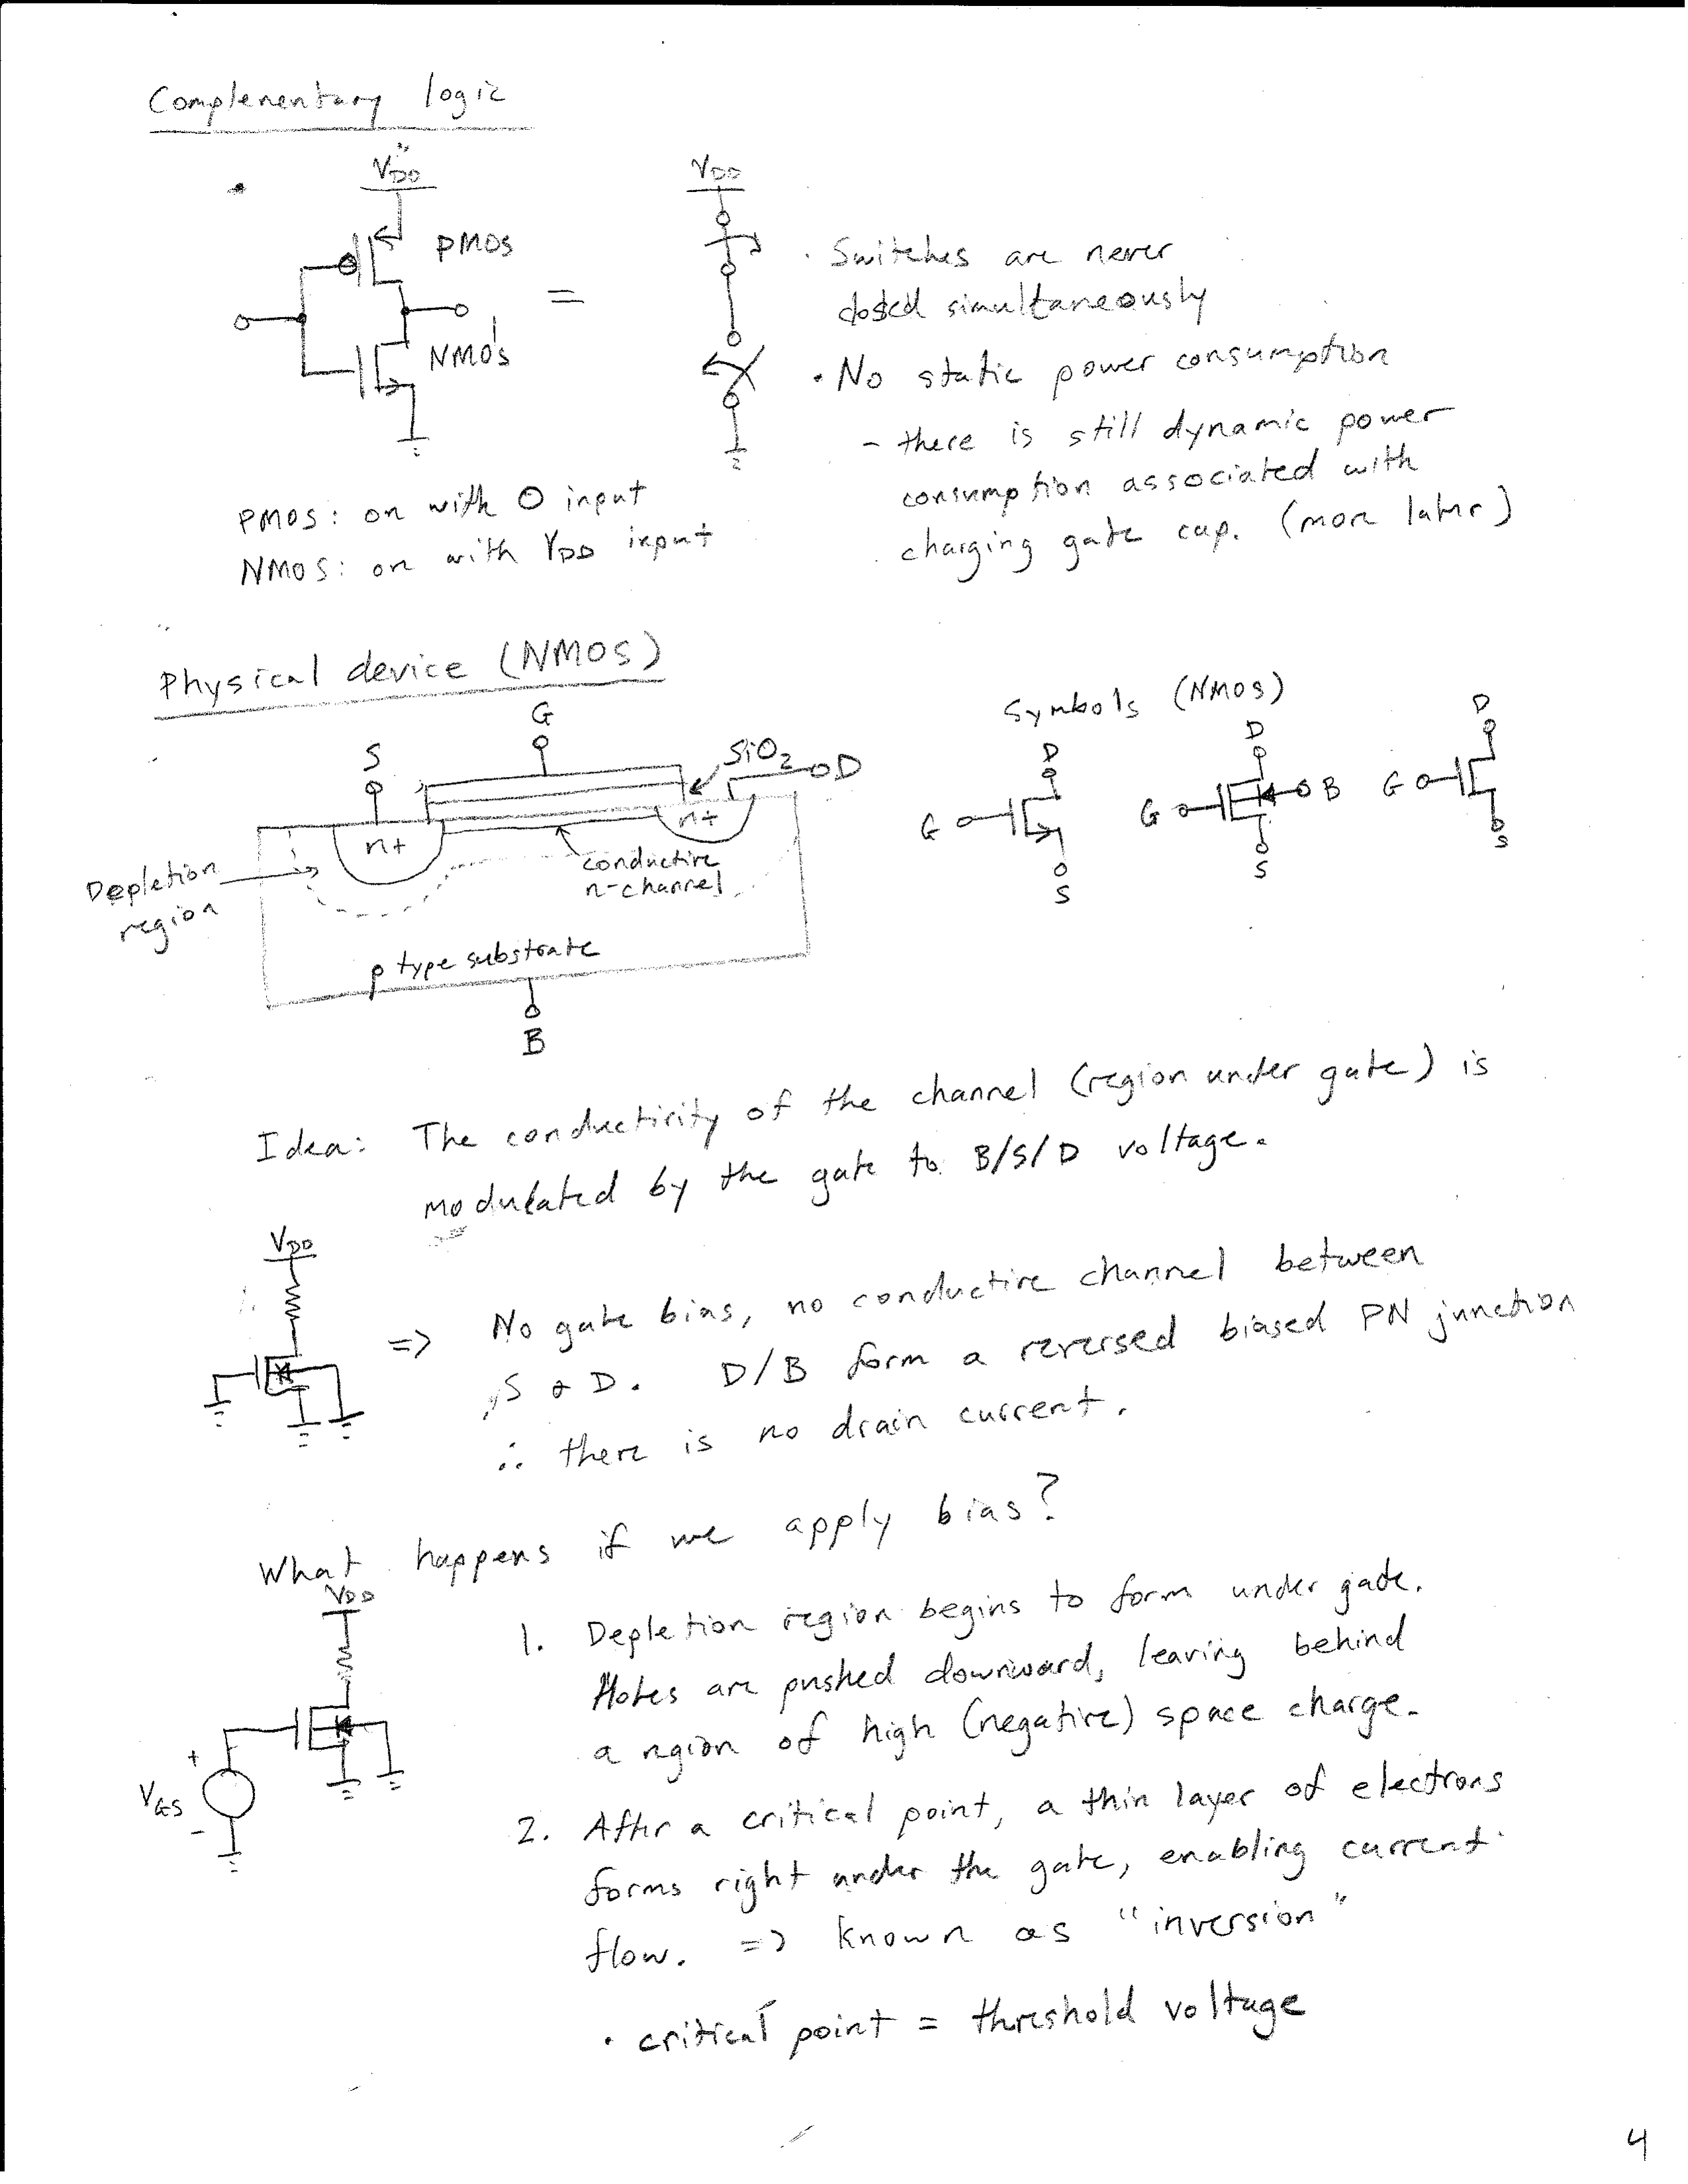 Complementary logic
VDD
PMOS
NMOS
=
VDD
· Switches are never
closed simultaneously
· No static power consumption
- there is still dynamic power
consumption associated with
charging gate cap. (more later)
PMOS: on with 0 input
NMOS: on with VDD input
Physical device (NMOS)
G
S
SiO2
D
n+
n+
conductive
n-channel
Depletion
region
p type substrate
B
Symbols (NMOS)
D
G
S
D
G
B
S
D
G
S
Idea: The conductivity of the channel (region under gate) is
modulated by the gate to B/S/D voltage.
VDD
=> No gate bias, no conductive channel between
S & D. D/B form a reversed biased PN junction
∴ there is no drain current.
What happens if we apply bias?
VDD
+
VGS
-
1. Depletion region begins to form under gate.
Holes are pushed downward, leaving behind
a region of high (negative) space charge.
2. After a critical point, a thin layer of electrons
forms right under the gate, enabling current
flow. => known as "inversion"
· critical point = threshold voltage
4